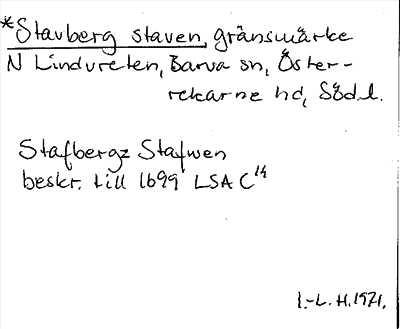 *Stavberg staven, gränsmärke
N Lindvreten, Barva sn, Öster-
rekarne hd, Södl.
Stafbergz Stafwen
beskr. till 1699 LSA C14
I.-L. H. 1971.